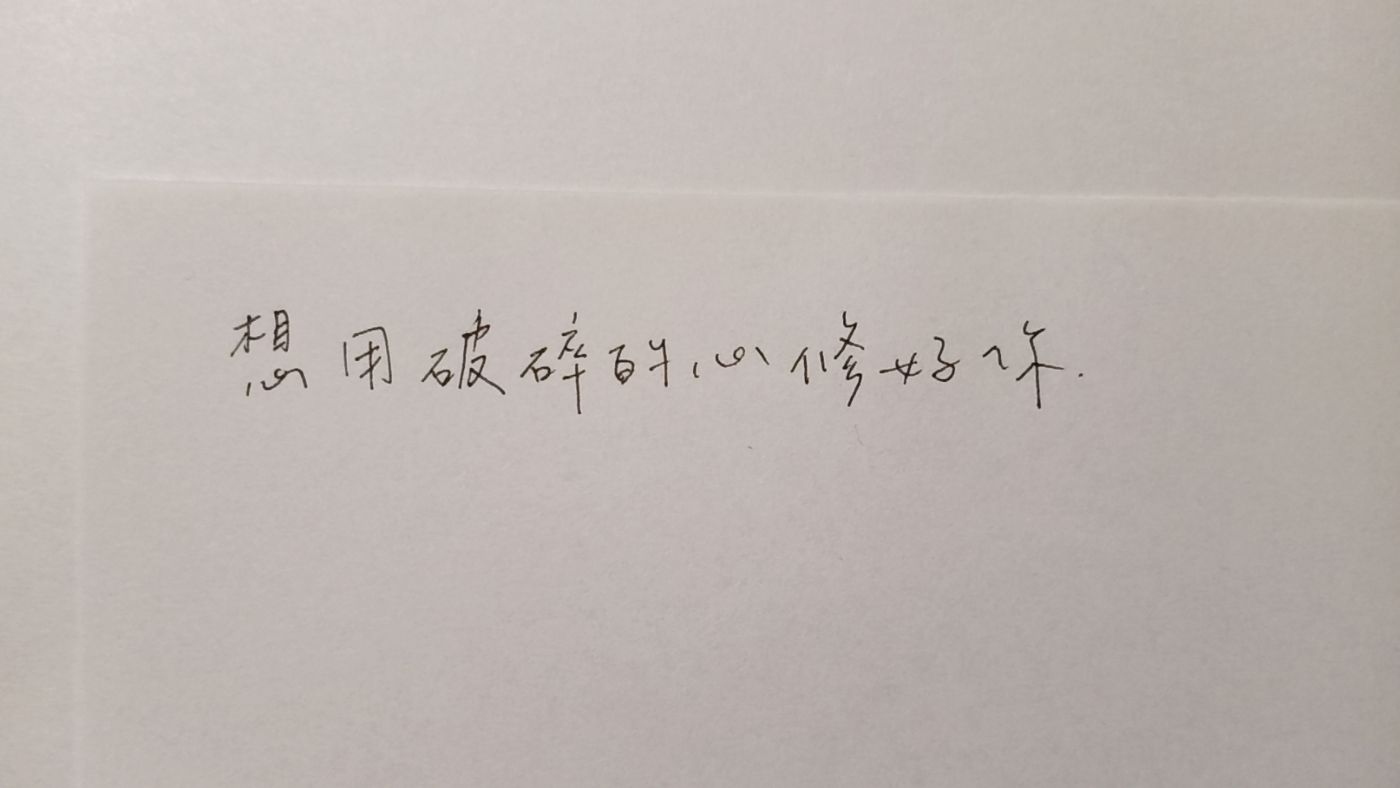 想用破碎的心修好你.